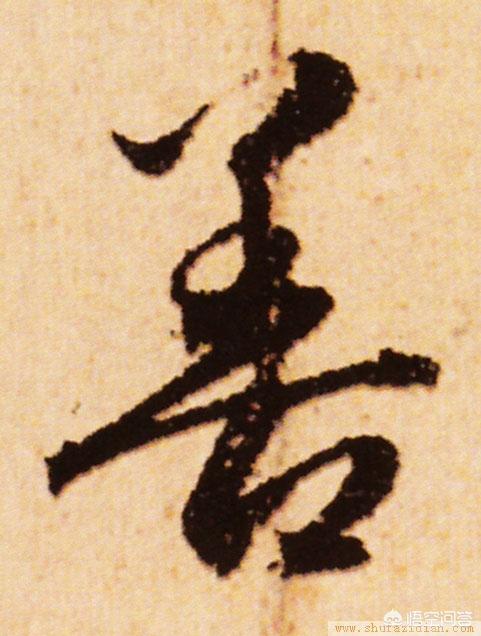 善
悟空问答
www.shufazidian.com